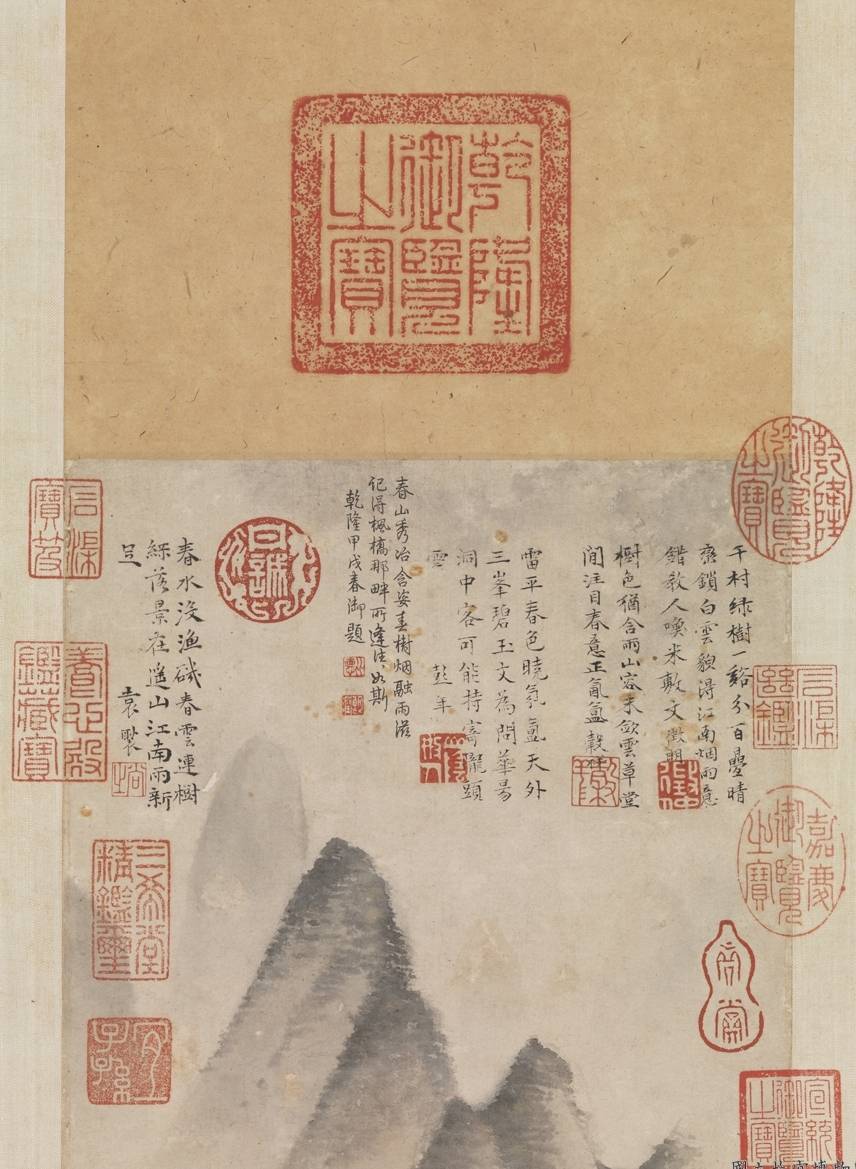 乾隆
御覽
之寶
乾隆
御覽
之寶
千村綠樹一谿分百疊晴
巒鎖白雲貌得江南烟雨意
錯教人喚米敷文徵明
樹色猶含雨山容未斂雲草堂
閒注目春意正氤氳穀祥
雷平春色曉氛氳天外
三峯碧玉文為問華昜
洞中客可能持寄隴頭
雲 彭年
春山秀冶含姿春樹烟融雨滋
記得楓橋那畔所逢往如斯
乾隆甲戌春御題
春水沒漁磯春雲連樹
綠落景在遙山江南雨新
足 袁褧
石渠
寶笈
養心殿
鑑藏寶
三希堂
精鑑璽
宜
子孫
石渠
寶鑑
嘉慶
御覽
之寶
宣統
御覽
之寶
國立故宮博物